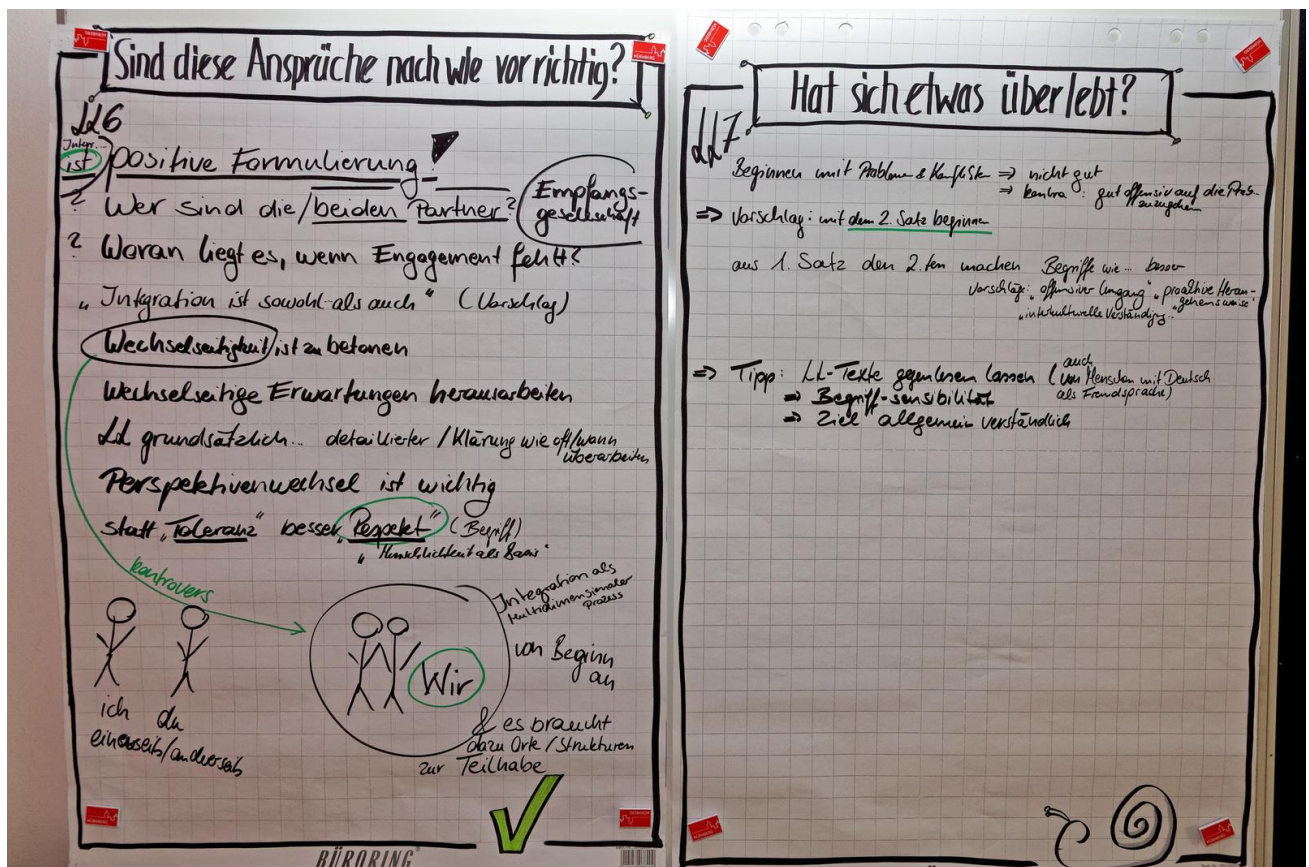 Sind diese Ansprüche nach wie vor richtig?
LL6
Integr...
ist positive Formulierung!
? Wer sind die / beiden Partner?
Empfangs-
gesellschaft
? Woran liegt es, wenn Engagement fehlt?
„Integration ist sowohl-als auch“ (Vorschlag)
Wechselseitigkeit ist zu betonen
Wechselseitige Erwartungen herausarbeiten
LL grundsätzlich... detaillierter / Klärung wie oft/wann
überarbeiten
Perspektivenwechsel ist wichtig
statt „Toleranz“ besser „Respekt“ (Begriff)
„Menschlichkeit als Basis“
kontrovers
Integration als
Multidimensionaler
Prozess
von Beginn
an
Wir
ich du
einerseits/andererseits
& es braucht
dazu Orte / Strukturen
zur Teilhabe
BÜRORING
Hat sich etwas überlebt?
LL7
Beginnen mit Probleme & Konflikten => nicht gut
=> kontra: gut offensiv auf die Prob.
zuzugehen
=> Vorschlag: mit dem 2. Satz beginnen
aus 1. Satz den 2.ten machen Begriffe wie... besser
Vorschläge: „offensiver Umgang“ „proaktive Heran-
gehensweise“
„interkulturelle Verständig...“
=> Tipp: LL-Texte gegenlesen lassen (auch
von Menschen mit Deutsch
als Fremdsprache)
=> Begriff-sensibilität
=> Ziel allgemein verständlich